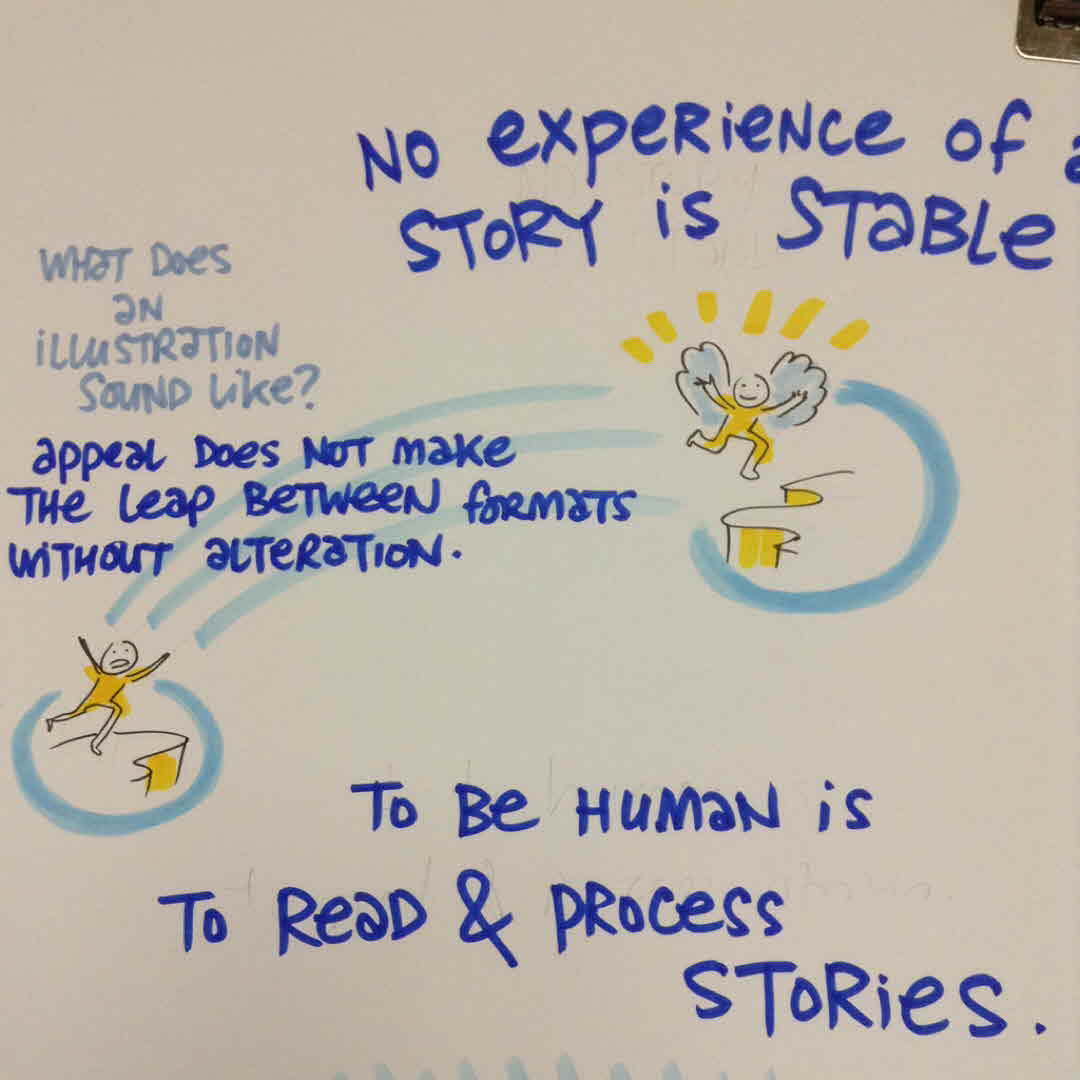 No experience of a
STORY is STABLE
WHAT Does
an
iLLUSTRATION
SOUND Like?
appeal Does NOT make
THE Leap BETWEEN formats
WITHOUT alTERATION.
To Be HUMAN is
To Read & PROCESS
SToRies.